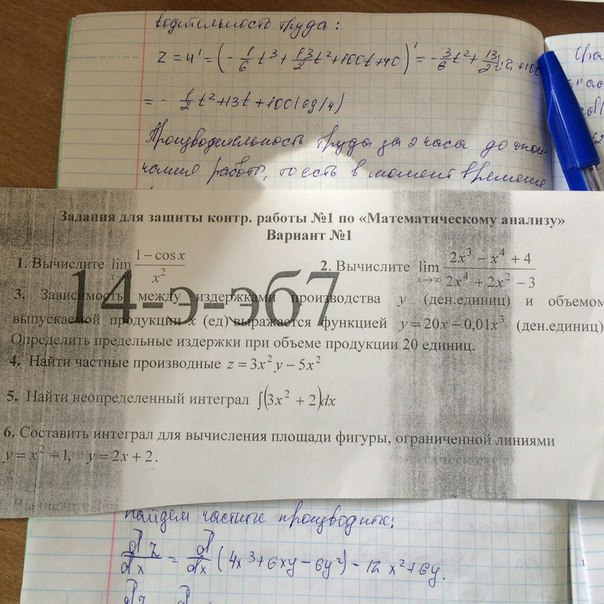 водительность труда :
z = u' = (- 1/6 t³ + 13/2 t² + 100t + 40)' = - 3/6 t² + 13/2 · 2 + 100
= - 1/2 t² + 13t + 100 (ед/ч)
Производительность труда за 2 часа до окон-
чания работы, то есть в момент времени
Задания для защиты контр. работы №1 по «Математическому анализу»
Вариант №1
1. Вычислите lim (1 − cos x)/x²
2. Вычислите lim x→∞ (2x³ − x⁴ + 4)/(2x⁴ + 2x² − 3)
14-э-эб7
3. Зависимость между издержками производства y (ден.единиц) и объемом
выпускаемой продукции x (ед) выражается функцией y = 20x − 0,01x³ (ден.единиц)
Определить предельные издержки при объеме продукции 20 единиц.
4. Найти частные производные z = 3x²y − 5x²
5. Найти неопределенный интеграл ∫(3x² + 2)dx
6. Составить интеграл для вычисления площади фигуры, ограниченной линиями
y = x² − 1, y = 2x + 2.
Найдем частные производные:
dz/dx = d/dx (4x³ + 6xy − 6y²) − 12x² + 6y.